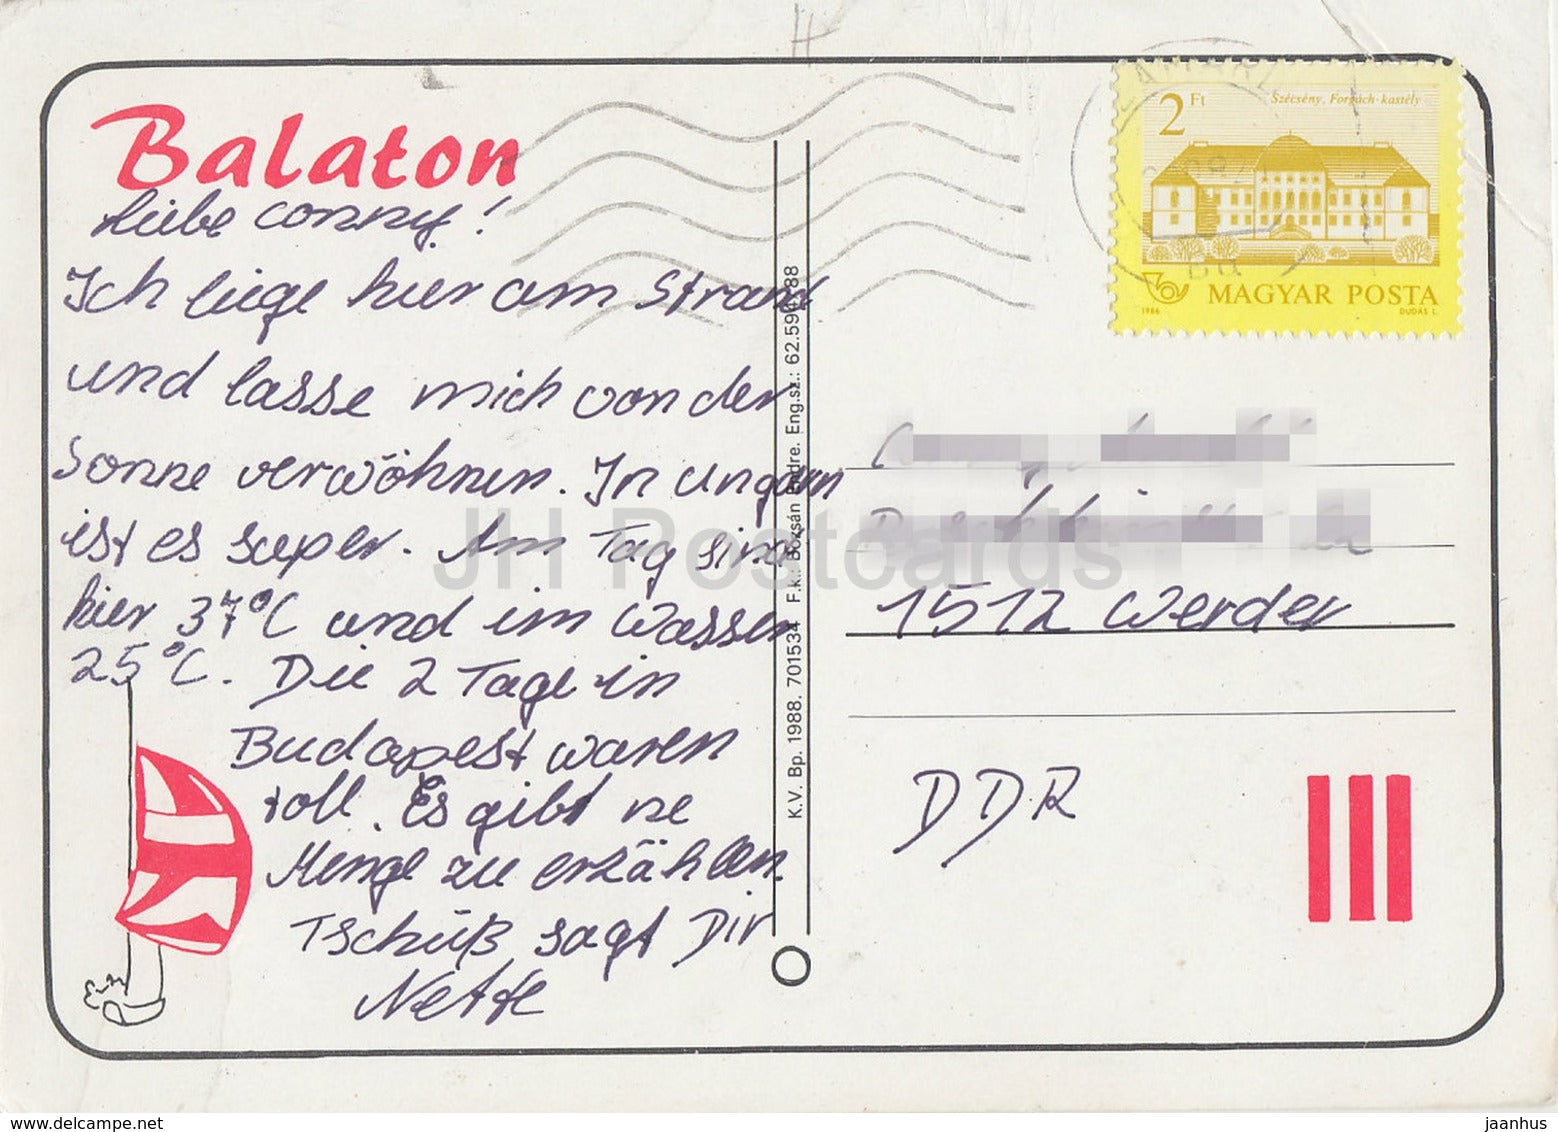 Balaton
Liebe Conny!
Ich liege hier am Strand
und lasse mich von der
Sonne verwöhnen. In Ungarn
ist es super. Am Tag sind
hier 37°C und im Wasser
25°C. Die 2 Tage in
Budapest waren
toll. Es gibt ne
Menge zu erzählen.
Tschüß sagt Dir
Nette
K.V. Bp. 1988. 701534 F.k.: Bozsán Endre. Eng.sz.: 62.594/88
2 Ft
Szécsény, Forgách-kastély
MAGYAR POSTA
1986
DUDÁS L.
1512 Werder
DDR
JH Postcards
jaanhus